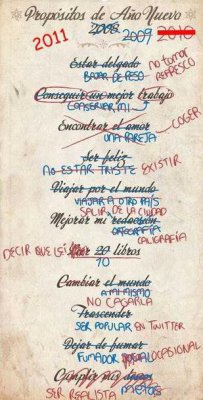 Propósitos de Año Nuevo
2011 2008 2009 2010
Estar delgado no tomar refresco
BAJAR DE PESO
Conseguir un mejor trabajo
CONSERVAR MI
Encontrar el amor COGER
UNA PAREJA
Ser feliz
NO ESTAR TRISTE EXISTIR
Viajar por el mundo
VIAJAR A OTRO PAÍS
SALIR DE LA CIUDAD
Mejorar mi redacción
ORTOGRAFÍA
CALIGRAFÍA
DECIR QUE LEÍ Leer 20 libros
10
Cambiar el mundo
A MI MISMO
NO CAGARLA
Trascender
SER POPULAR EN TWITTER
Dejar de fumar
FUMADOR SOCIAL OCASIONAL
Cumplir mis
SER REALISTA METAS